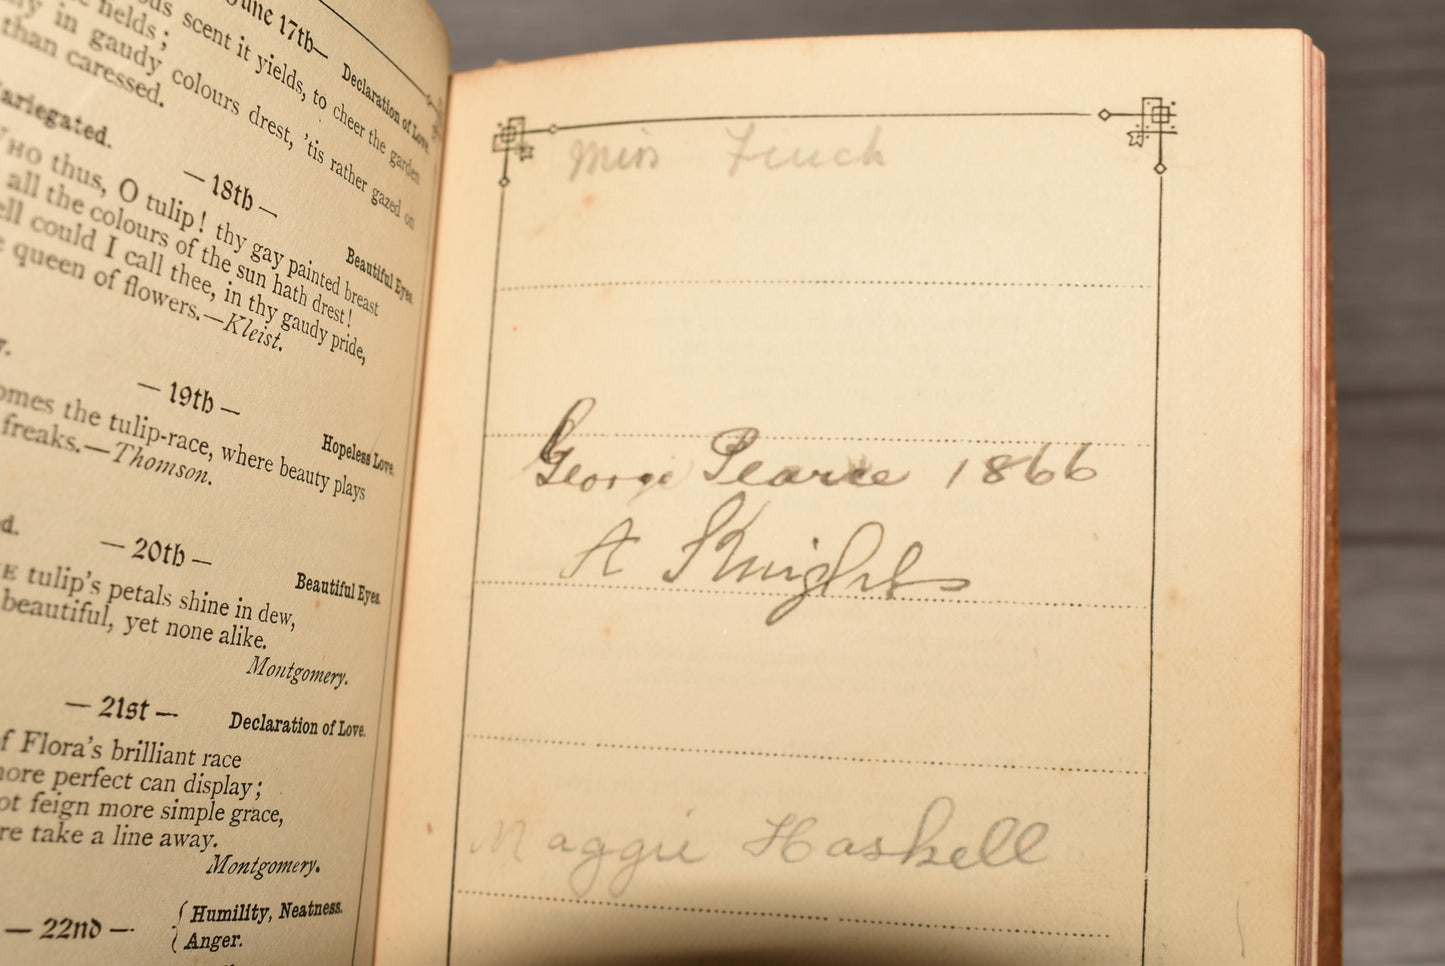 June 17th—
Declaration of Love.
ous scent it yields, to cheer the garden
fields;
y in gaudy colours drest, 'tis rather gazed on
than caressed.
ariegated.
— 18th —
Beautiful Eyes.
HO thus, O tulip! thy gay painted breast
all the colours of the sun hath drest!
ell could I call thee, in thy gaudy pride,
e queen of flowers.—Kleist.
y.
— 19th —
Hopeless Love.
omes the tulip-race, where beauty plays
freaks.—Thomson.
d.
— 20th —
Beautiful Eyes.
E tulip's petals shine in dew,
beautiful, yet none alike.
Montgomery.
— 21st —
Declaration of Love.
f Flora's brilliant race
ore perfect can display;
ot feign more simple grace,
re take a line away.
Montgomery.
— 22nd —
Humility, Neatness.
Anger.
Miss Finch
George Pearce 1866
A Knights
Maggie Haskell